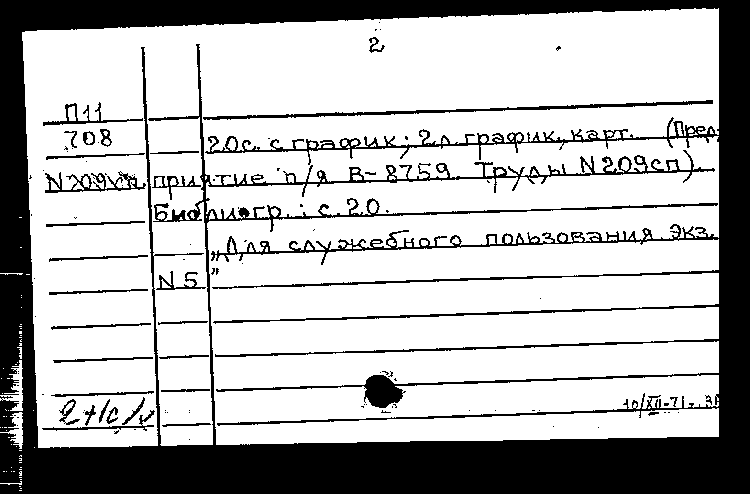 2
П11
708 20с. с график; 2л. график, карт. (Пред-
N209 приятие п/я В-8759. Труды N209сп).
Библиогр.: с. 20.
„Для служебного пользования Экз.
N5"
10/XII-71г.